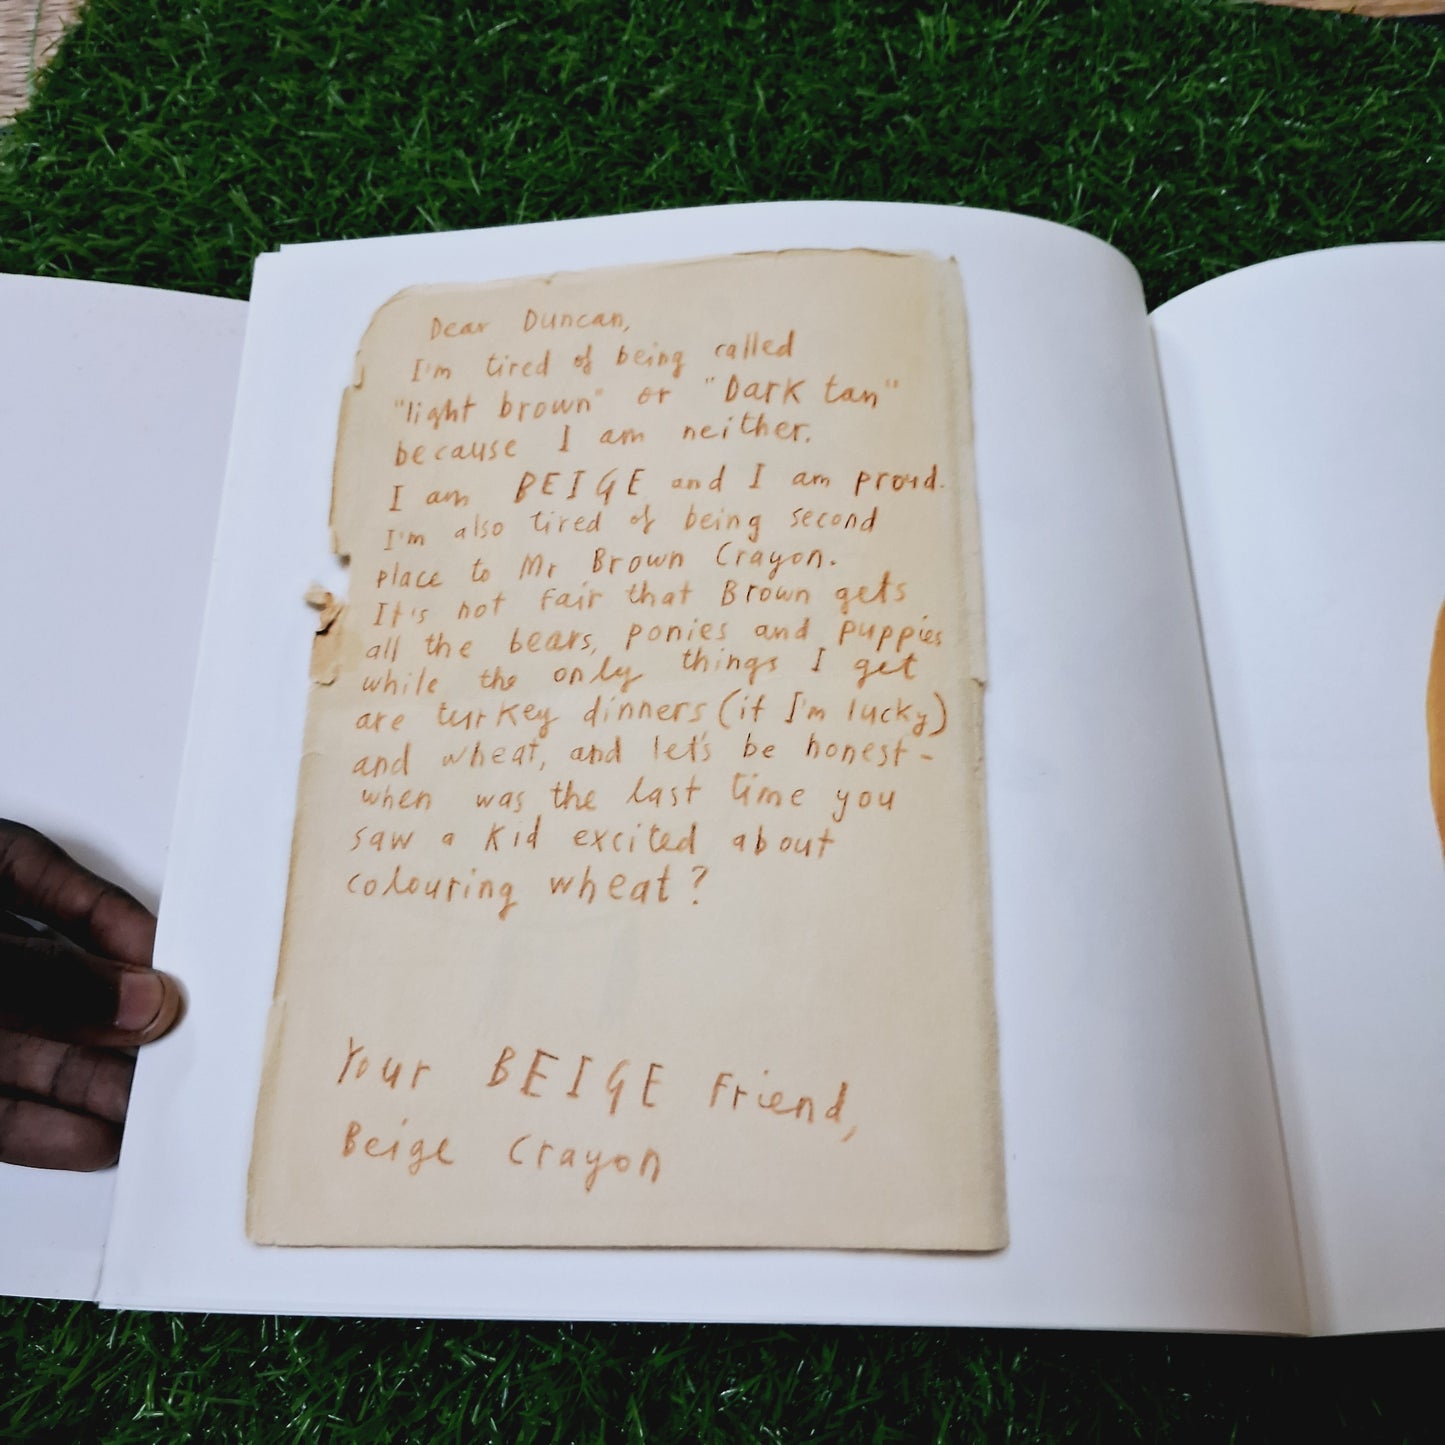 Dear Duncan,
I'm tired of being called
"light brown" or "Dark tan"
because I am neither.
I am BEIGE and I am proud.
I'm also tired of being second
place to Mr Brown Crayon.
It's not fair that Brown gets
all the bears, ponies and puppies
while the only things I get
are turkey dinners (if I'm lucky)
and wheat, and let's be honest -
when was the last time you
saw a kid excited about
colouring wheat?
Your BEIGE friend,
Beige Crayon